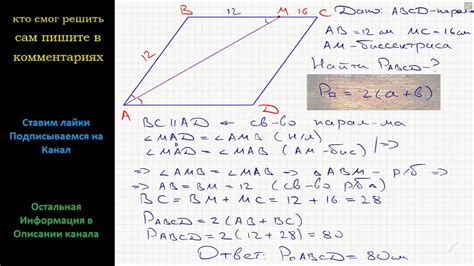 кто смог решить
сам пишите в
комментариях
Ставим лайки
Подписываемся на
Канал
Остальная
Информация в
Описании канала
B 12 M 16 C
12
A D
Дано: ABCD-парал
AB = 12 см MC = 16см
AM-биссектриса
Найти PABCD-?
P▱ = 2(a+b)
BC || AD ⇐ св-во парал-ма
∠MAD = ∠AMB (н/л)
∠MAD = ∠MAB (AM-бис) | ⇒
⇒ ∠AMB = ∠MAB ⇒ △ABM - р/б ⇒
⇒ AB = BM = 12 (св-во р/б △)
BC = BM + MC = 12 + 16 = 28
PABCD = 2(AB + BC)
PABCD = 2(12 + 28) = 80
Ответ: PABCD = 80см